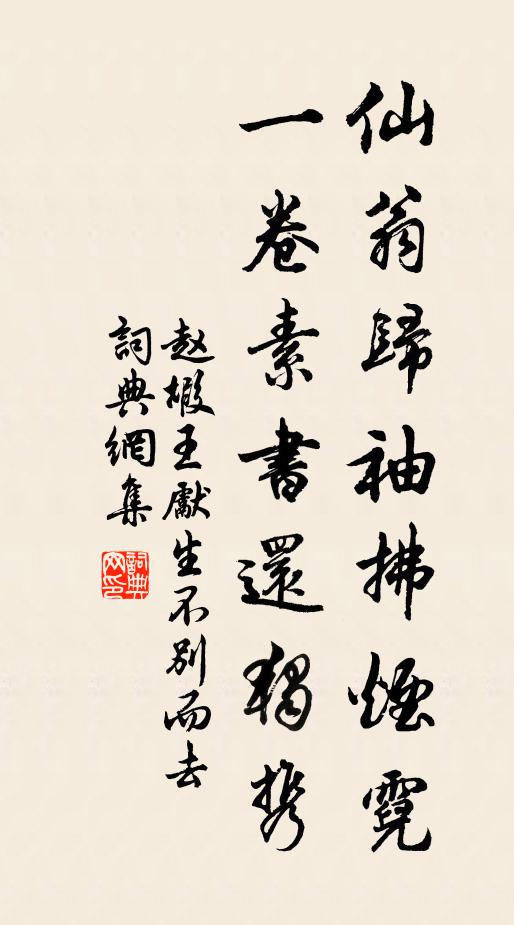 仙翁歸袖拂煙霓
一卷素書還獨携
赵嘏王獻生不別而去
詞典網集
詞典网印